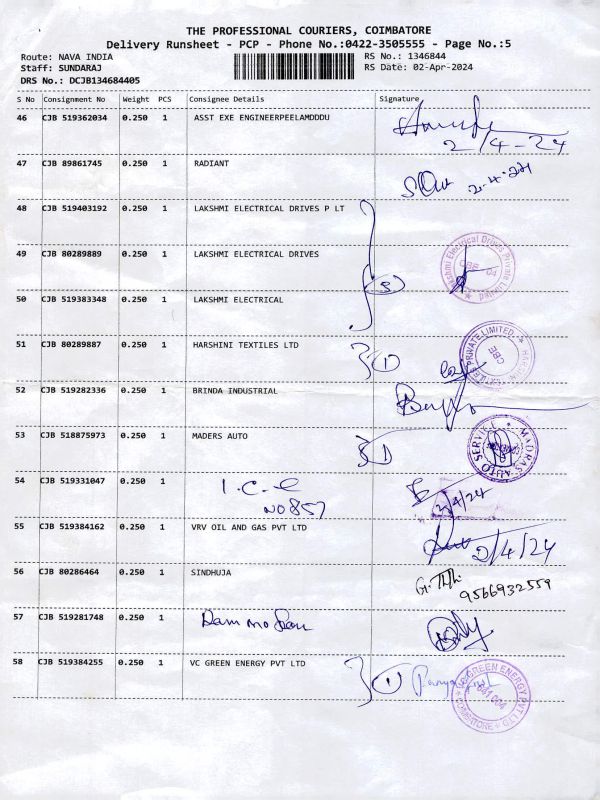 THE PROFESSIONAL COURIERS, COIMBATORE
Delivery Runsheet - PCP - Phone No.:0422-3505555 - Page No.:5
Route: NAVA INDIA RS No.: 1346844
Staff: SUNDARAJ RS Date: 02-Apr-2024
DRS No.: DCJB134684405
S No Consignment No Weight PCS Consignee Details Signature
46 CJB 519362034 0.250 1 ASST EXE ENGINEERPEELAMDDDU
2/4-24
47 CJB 89861745 0.250 1 RADIANT
2-4-24
48 CJB 519403192 0.250 1 LAKSHMI ELECTRICAL DRIVES P LT
49 CJB 80289889 0.250 1 LAKSHMI ELECTRICAL DRIVES
Lakshmi Electrical Drives Private Limited
CBE
50 CJB 519383348 0.250 1 LAKSHMI ELECTRICAL
51 CJB 80289887 0.250 1 HARSHINI TEXTILES LTD
1
PRIVATE LIMITED
CBE
52 CJB 519282336 0.250 1 BRINDA INDUSTRIAL
53 CJB 518875973 0.250 1 MADERS AUTO
1
MADRAS AUTO SERVICE
54 CJB 519331047 0.250 1 I.C.E
NO 857
2/4/24
55 CJB 519384162 0.250 1 VRV OIL AND GAS PVT LTD
2/4/24
56 CJB 80286464 0.250 1 SINDHUJA
9566932559
57 CJB 519281748 0.250 1
58 CJB 519384255 0.250 1 VC GREEN ENERGY PVT LTD
1
VC GREEN ENERGY PVT LTD
641 004
COIMBATORE